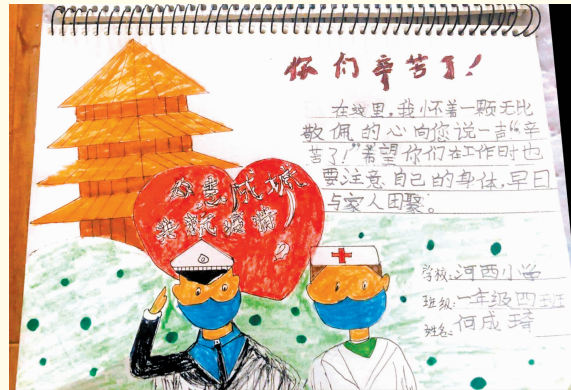 你们辛苦了!
在这里,我怀着一颗无比
敬佩的心向您说一声“辛
苦了!”希望你们在工作时也
要注意自己的身体,早日
与家人团聚。
众志成城
共抗病情
学校:河西小学
班级:一年级四班
姓名:何成琦